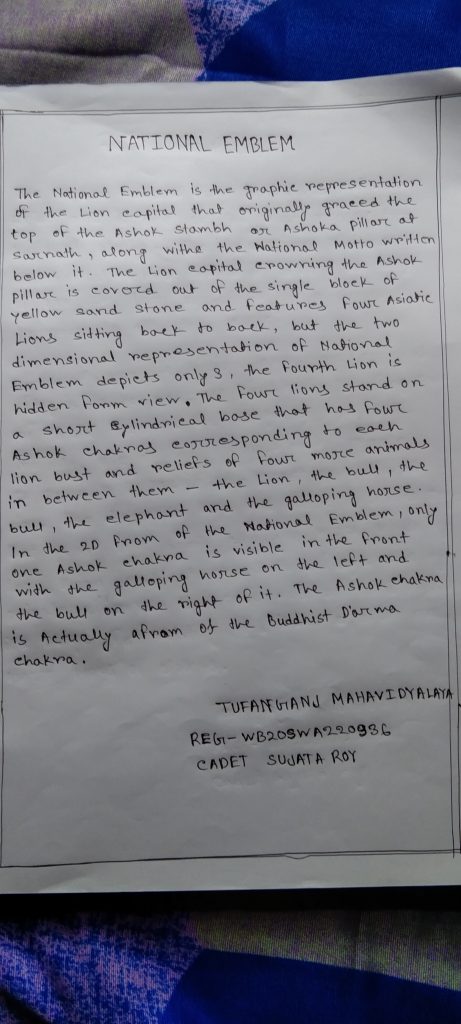 NATIONAL EMBLEM
The National Emblem is the graphic representation
of the Lion capital that originally graced the
top of the Ashok Stambh or Ashoka pillar at
sarnath, along withe the National Motto written
below it. The Lion capital crowning the Ashok
pillar is coverd out of the single block of
yellow sand stone and features four Asiatic
Lions sidting back to back, but the two
dimensional representation of National
Emblem depicts only 3, the fourth Lion is
hidden form view. The four lions stand on
a short cylindrical base that has four
Ashok chakras corresponding to each
lion bust and reliefs of four more animals
in between them - the Lion, the bull, the
bull, the elephant and the galloping horse.
In the 2D from of the National Emblem, only
one Ashok chakra is visible in the front
with the galloping horse on the left and
the bull on the right of it. The Ashok chakra
is Actually afrom of the Buddhist D'arma
chakra.
TUFANGANJ MAHAVIDYALAYA
REG-WB20SWA220936
CADET SUJATA ROY